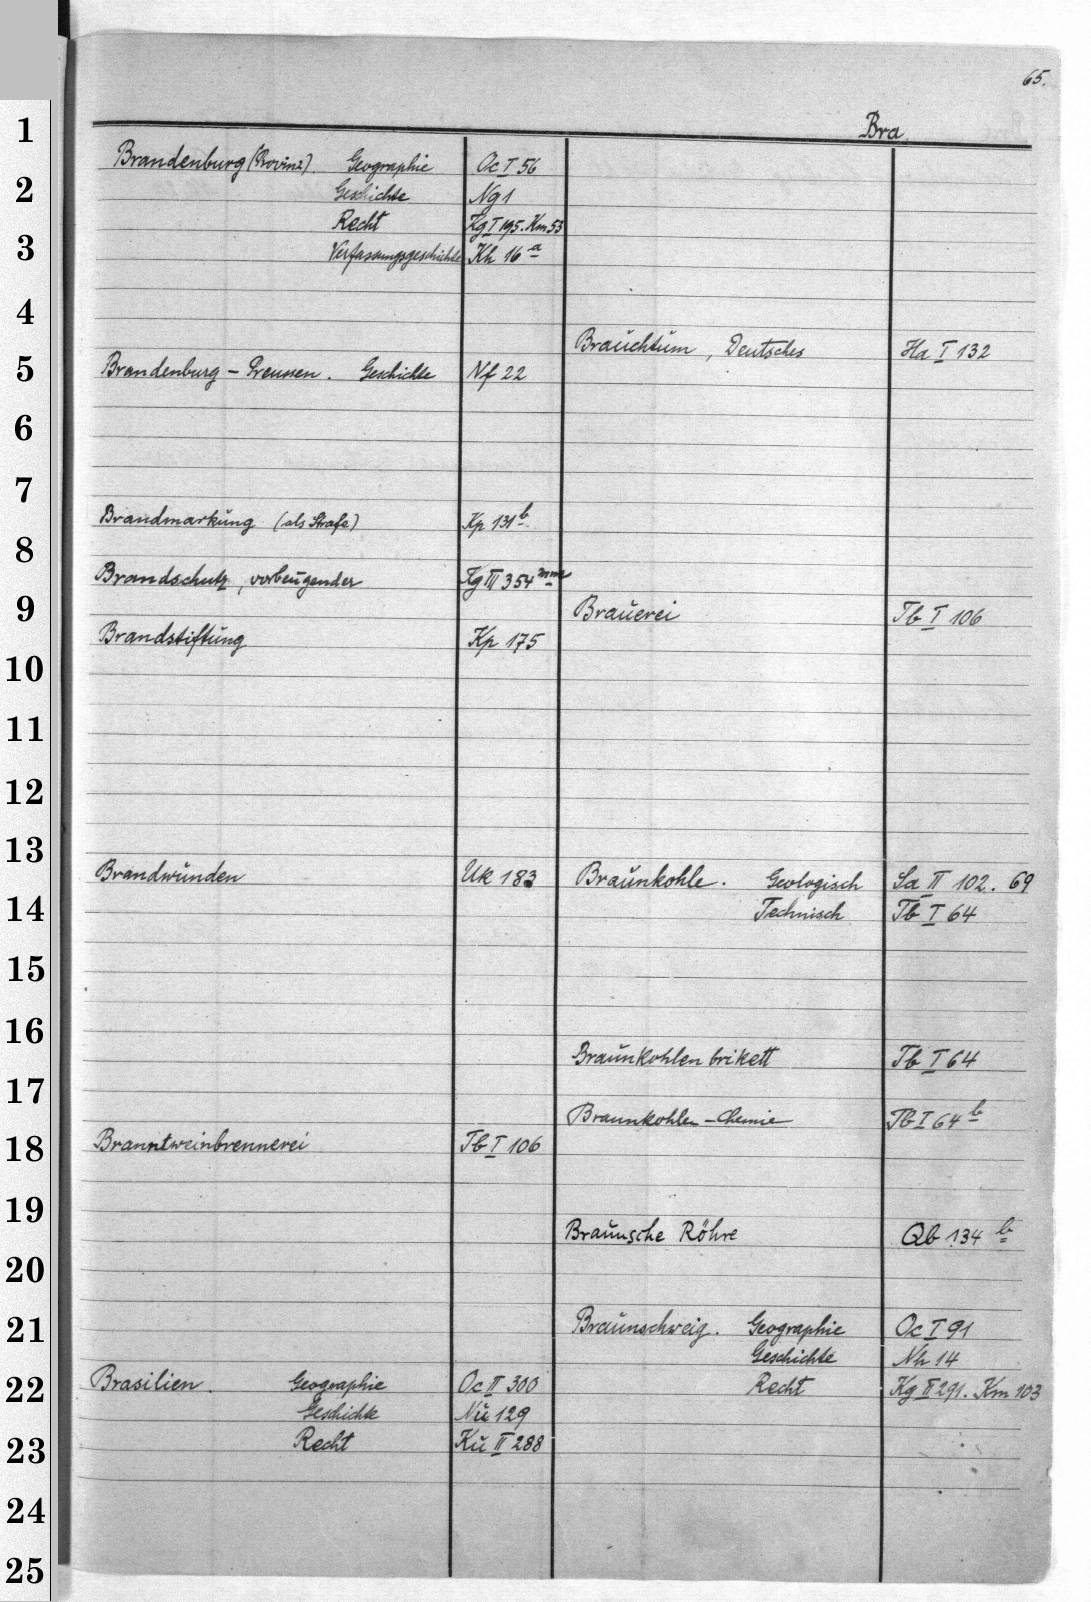 65.
Bra
Brandenburg (Provinz). Geographie Oc I 56
Geschichte Ng 1
Recht Kg I 195. Km 53
Verfassungsgeschichte Kh 16 a
Brandenburg – Preussen. Geschichte Nf 22
Brandmarkung (als Strafe) Kp 131 b
Brandschutz, vorbeugender Kg III 354 mm
Brandstiftung Kp 175
Brandwunden Uk 183
Branntweinbrennerei Tb I 106
Brasilien. Geographie Oc II 300
Geschichte Nu 129
Recht Ku II 288
Brauchtum, Deutsches Ha I 132
Brauerei Tb I 106
Braunkohle. Geologisch Sa II 102. 69
Technisch Tb I 64
Braunkohlenbrikett Tb I 64
Braunkohlen-Chemie Tb I 64 b
Braunsche Röhre Qb 134 b
Braunschweig. Geographie Oc I 91
Geschichte Nh 14
Recht Kg II 291. Km 103
1
2
3
4
5
6
7
8
9
10
11
12
13
14
15
16
17
18
19
20
21
22
23
24
25